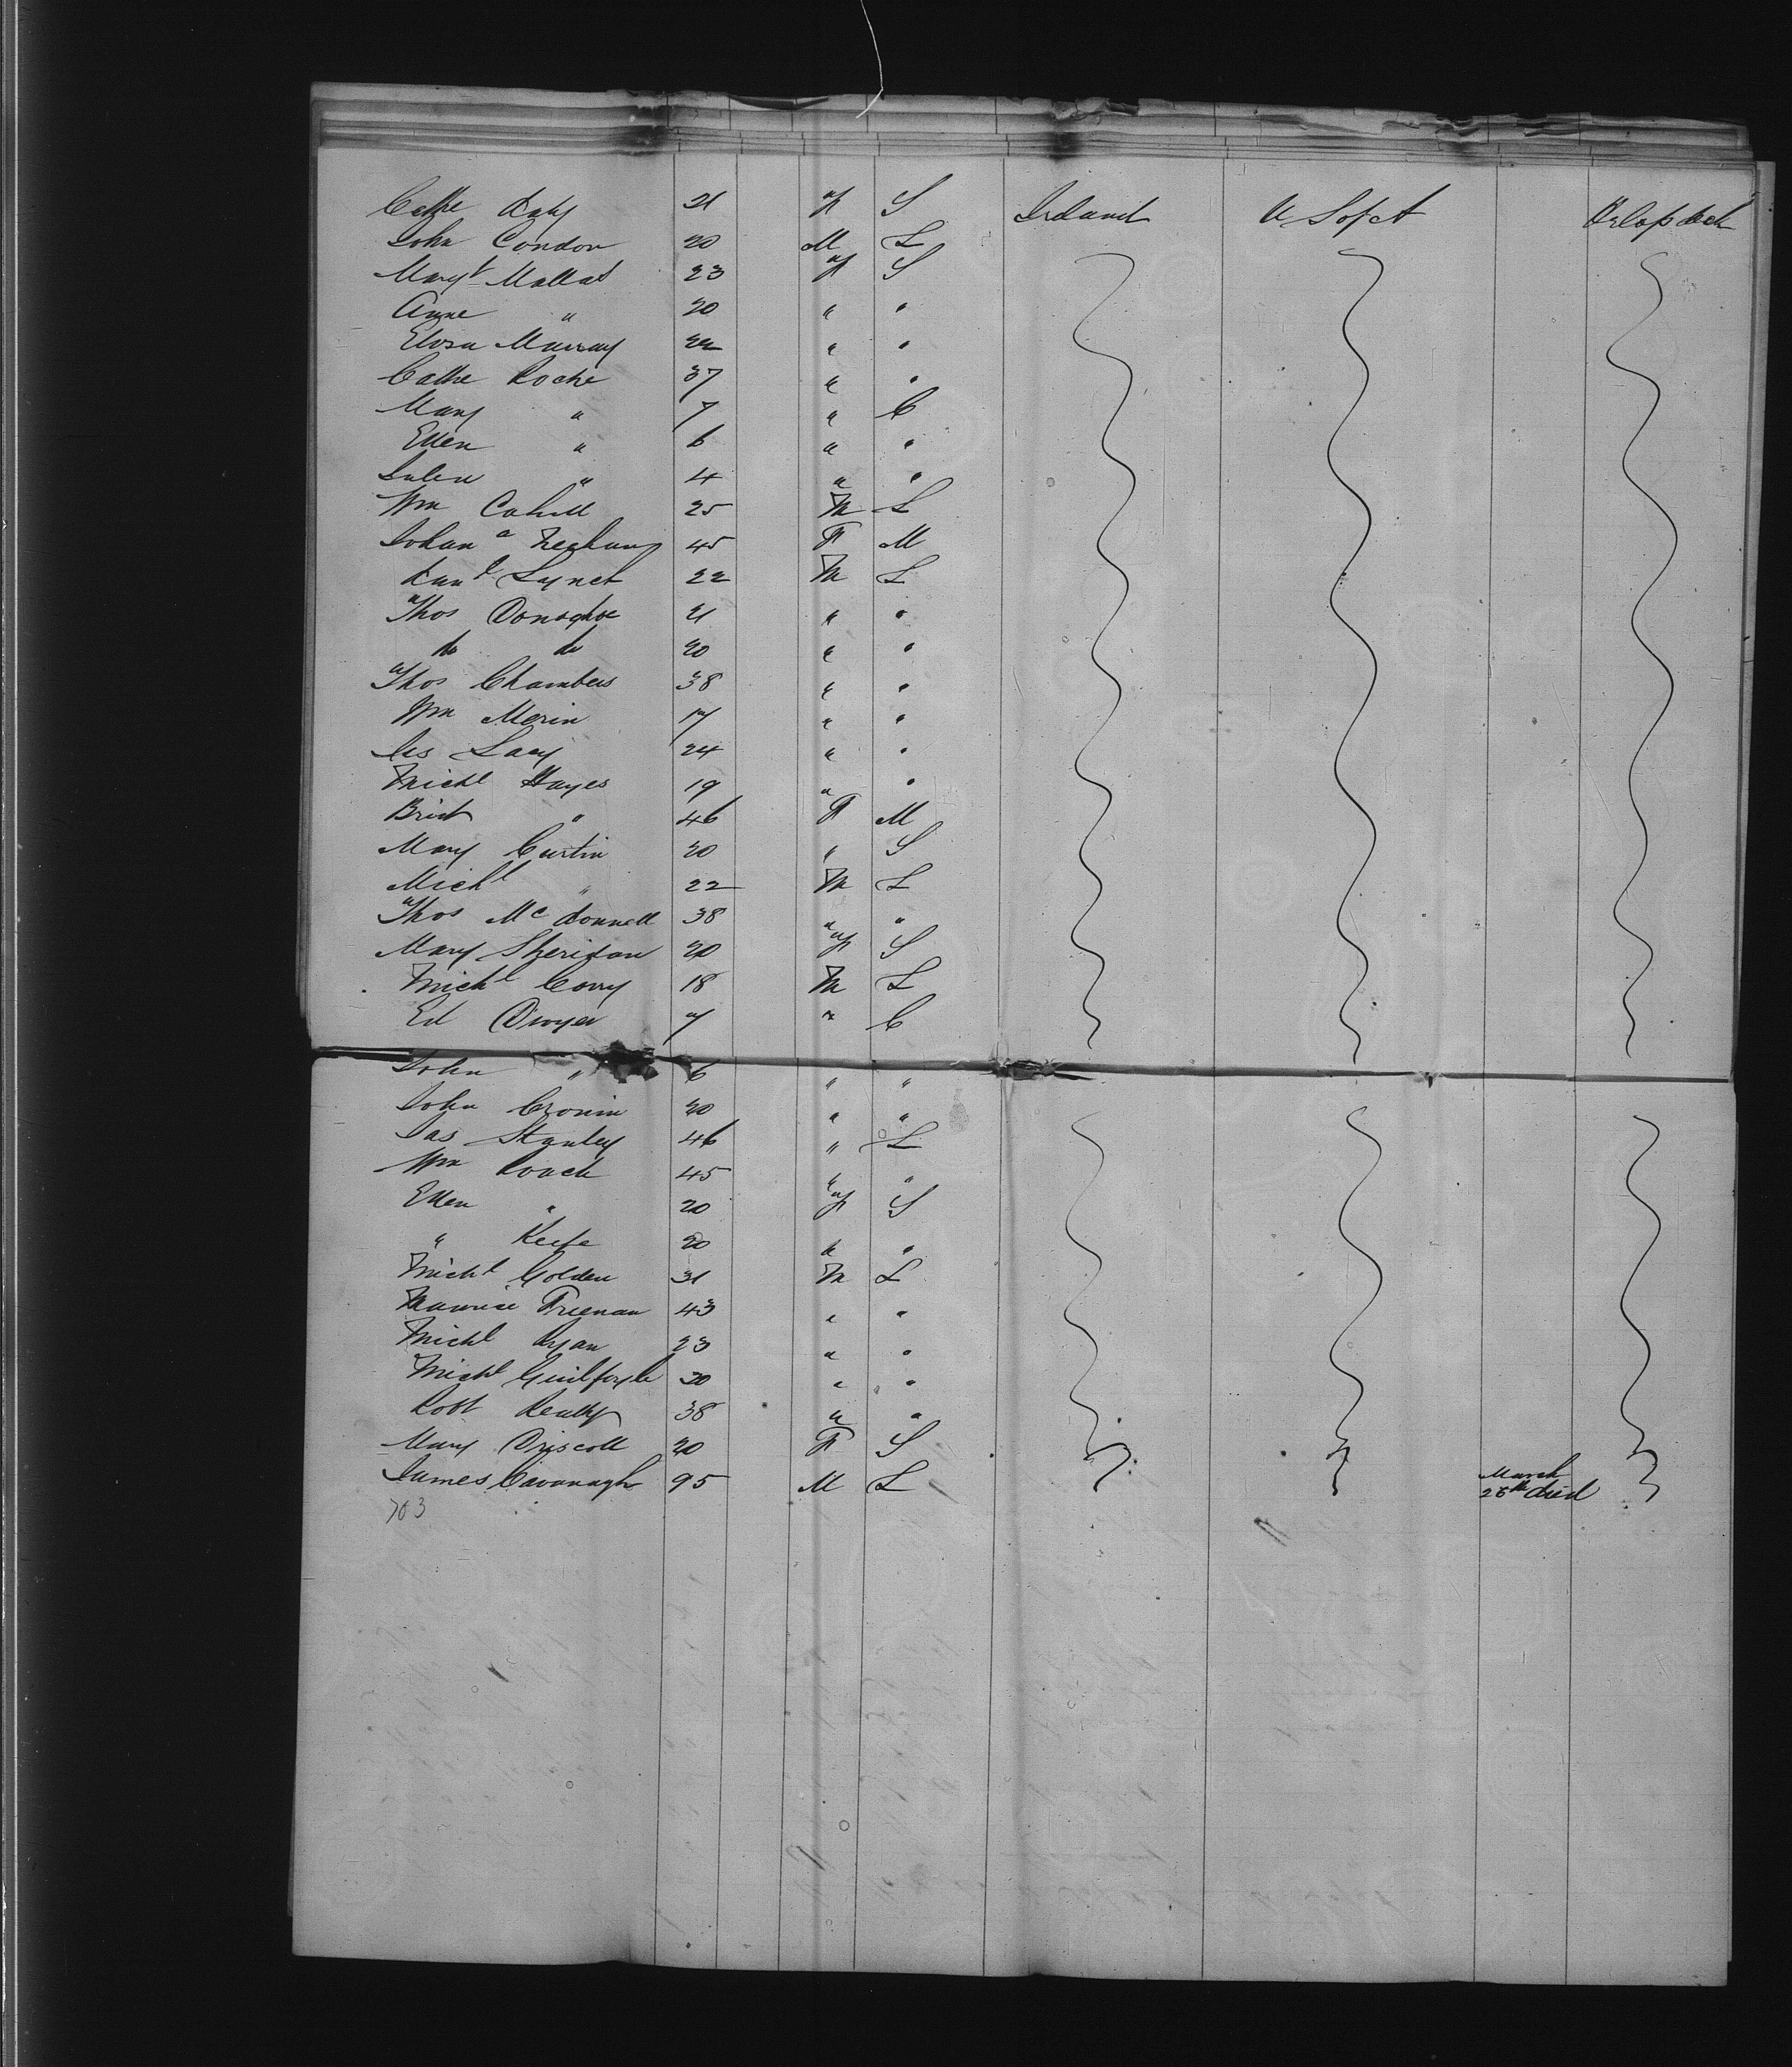 Cathe Daly 21 F S Ireland U S of A Orlop deck
John Condon 20 M L
Margt 23 F S
Anne " 20 " "
Eliza Murray 22 " "
Cathe Roche 37 " "
Mary " 7 " C
Ellen " 6 " "
" 4 " "
Wm Cahill 25 M L
Johana 45 F M
Danl Lynch 22 M L
Thos Donoghoe 21 " "
do do 20 " "
Thos Chambers 38 " "
Wm Morin 17 " "
Jas Lacy 24 " "
Michl Hayes 19 " "
Bridt " 46 F M
Mary Curtin 20 " S
Michl " 22 M L
Thos McDonnell 38 " "
Mary Sheridan 20 F S
Michl Corry 18 M L
Ed Dwyer 7 " C
John " 6 " "
John Cronin 20 " "
Jas Stanley 46 " L
Wm Roach 45 " "
Ellen " 20 F S
" Keefe 20 " "
Michl Golden 31 M L
Maurice Freenan 43 " "
Michl Ryan 23 " "
Michl Guilfoyle 30 " "
Robt 38 " "
Mary Driscoll 20 F S
James Cavanagh 95 M L March 26th died
703